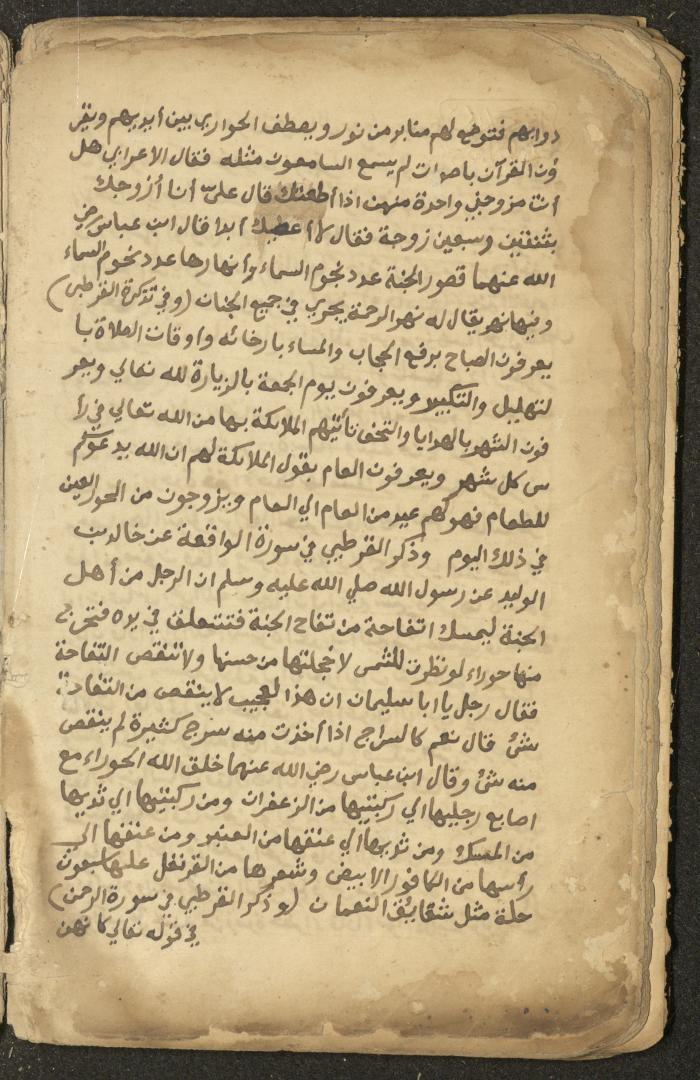 دوابهم فتوضع لهم منابر من نور ويعطف الحواري بين أيديهم ويقر
ؤن القرآن باصوات لم يسمع السامعون مثله فقال الاعرابي هل
أنت مزوجني واحدة منهن اذا أطعتك قال علي أنا أزوجك
بثنتين وسبعين زوجة فقال لا أعصيك أبدا قال ابن عباس رضي
الله عنهما قصور الجنة عدد نجوم السماء وأنهارها عدد نجوم السماء
وفيها نهر يقال له نهر الرحمة يجري في جميع الجنان (وفي تذكرة القرطبي)
يعرفون الصباح برفع الحجاب والمساء بارخائه واوقات الصلاة با
لتهليل والتكبير ويعرفون يوم الجمعة بالزيارة لله تعالي ويعر
فون الشهر بالهدايا والتحف تأتيهم الملائكة بها من الله تعالي في رأ
س كل شهر ويعرفون العام بقول الملائكة لهم ان الله يدعوكم
للطعام فهو لهم عيد من العام الي العام ويزوجون من الحور العين
في ذلك اليوم وذكر القرطبي في سورة الواقعة عن خالد بن
الوليد عن رسول الله صلي الله عليه وسلم ان الرجل من أهل
الجنة ليمسك اتفاحة من تفاح الجنة فتتعلق في يده فتخرج
منها حوراء لو نظرت للشمس لاخجلتها من حسنها ولا تنقص التفاحة
فقال رجل يا ابا سليمان ان هذا لعجيب لا ينقص من التفاحة
شئ قال نعم كالسراج اذا أخذت منه سرج كثيرة لم ينقص
منه شئ وقال ابن عباس رضي الله عنهما خلق الله الحوراء مع
اصابع رجليها الي ركبتيها من الزعفران ومن ركبتيها الي ثدييها
من المسك ومن ثدييها الي عنقها من العنبر ومن عنقها الي
رأسها من الكافور الابيض وشعرها من القرنفل عليها سبعون
حلة مثل شقايق النعمان (وذكر القرطبي في سورة الرحمن)
في قوله تعالي كانهن